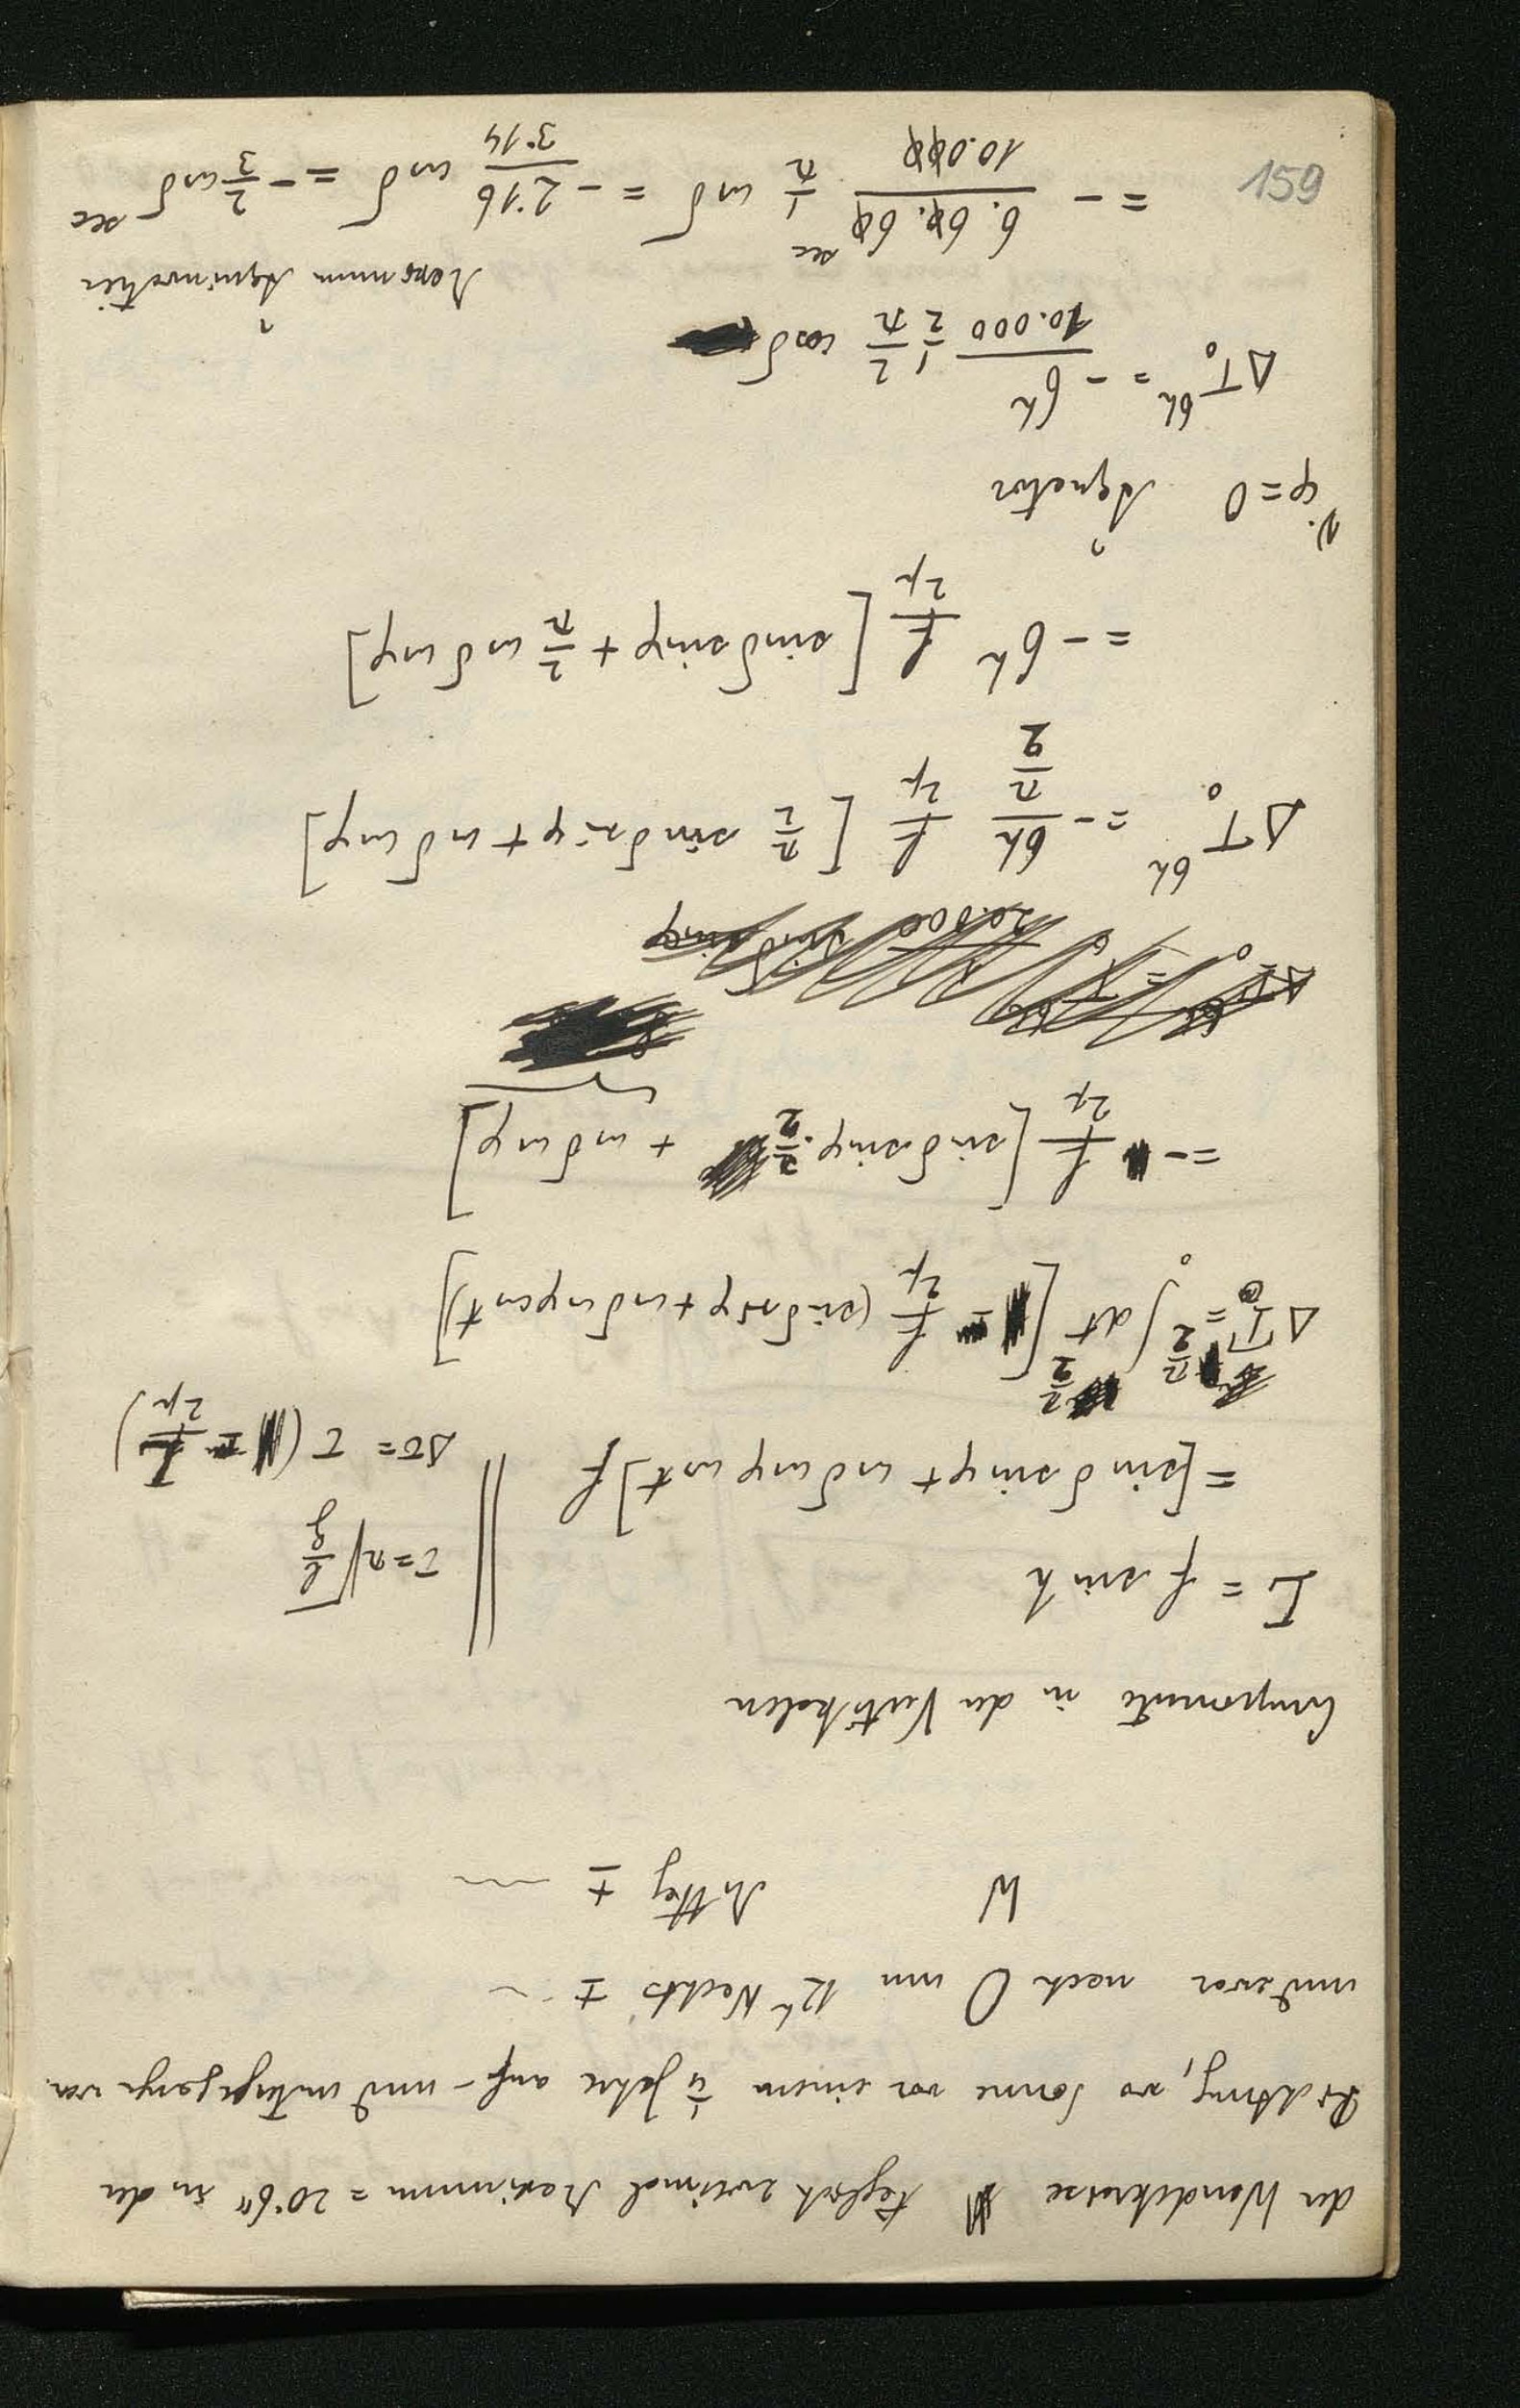 der Wendekreise täglich zweimal Maximum = 20·6" in der
Richtung, wo Sonne vor einem ¼ Jahre auf- und untergegangen war.
und zwar nach O um 12h Nachts ±
W Mittag ±
Componente in der Vertikalen
I = f sin h
= [sin δ sin φ + cos δ cos φ cos t] f
τ = π √(l/g)
Δτ = τ (- f/2g)
= ∫ dt [- f/2g (sin δ sin φ + cos δ cos φ cos t)]
= - f/2g [sin δ sin φ · π/2 + cos δ cos φ]
ΔT₀^6h = - 6h/(π/2) f/2g [π/2 sin δ sin φ + cos δ cos φ]
= - 6h f/2g [sin δ sin φ + 2/π cos δ cos φ]
1). φ = 0 Äquator
ΔT₀^6h = - 6h/10.000 ½ 2/π cos δ
= - 6·60·60 sec/10.000 1/π cos δ = - 2·16/3·14 cos δ = - 2/3 cos δ sec
Maximum Äquinoktien
159